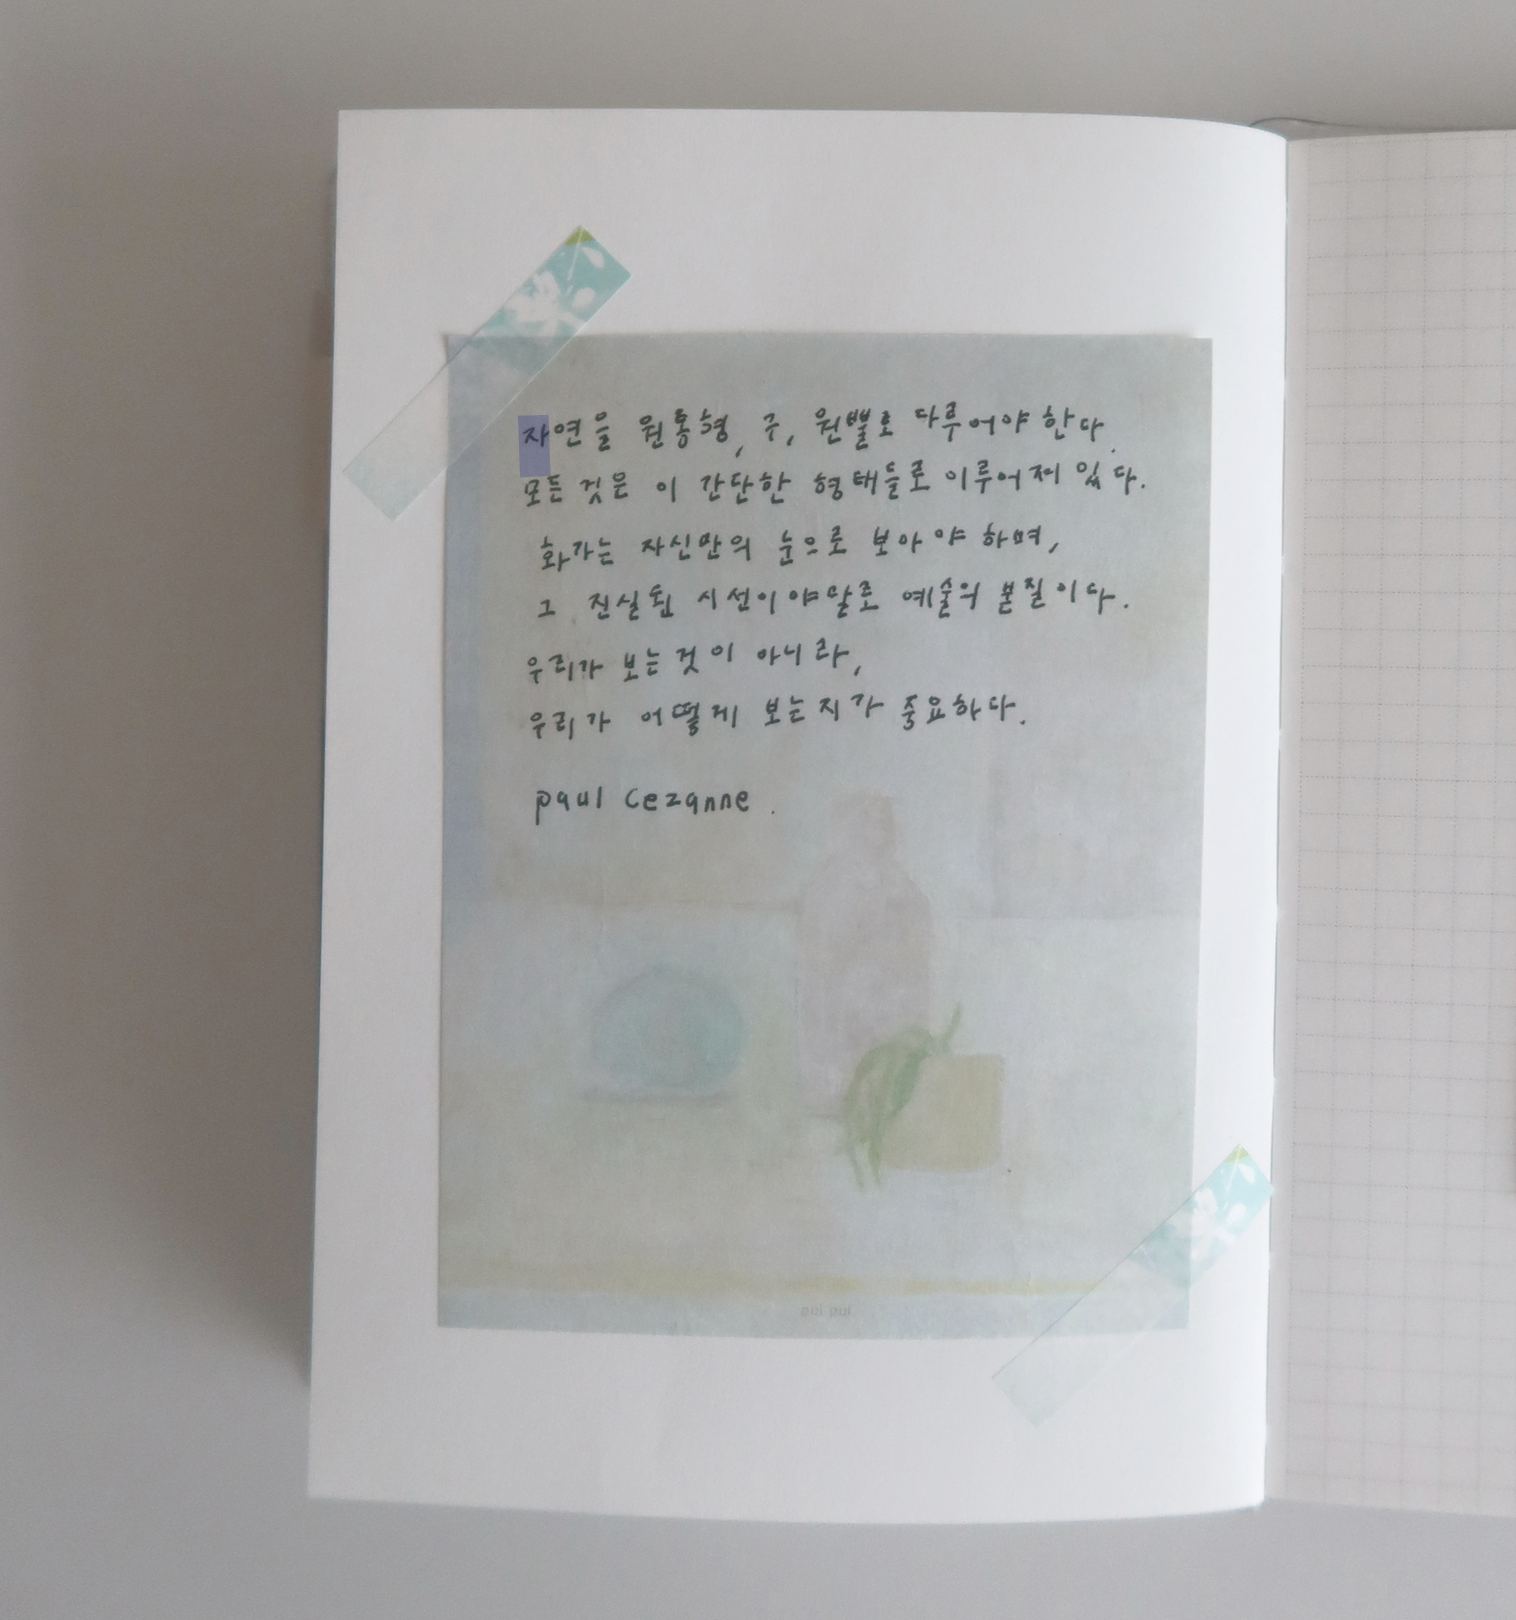 자연을 원통형, 구, 원뿔로 다루어야 한다.
모든 것은 이 간단한 형태들로 이루어져 있다.
화가는 자신만의 눈으로 보아야 하며,
그 진실된 시선이야말로 예술의 본질이다.
우리가 보는것이 아니라,
우리가 어떻게 보는지가 중요하다.
paul cezanne.